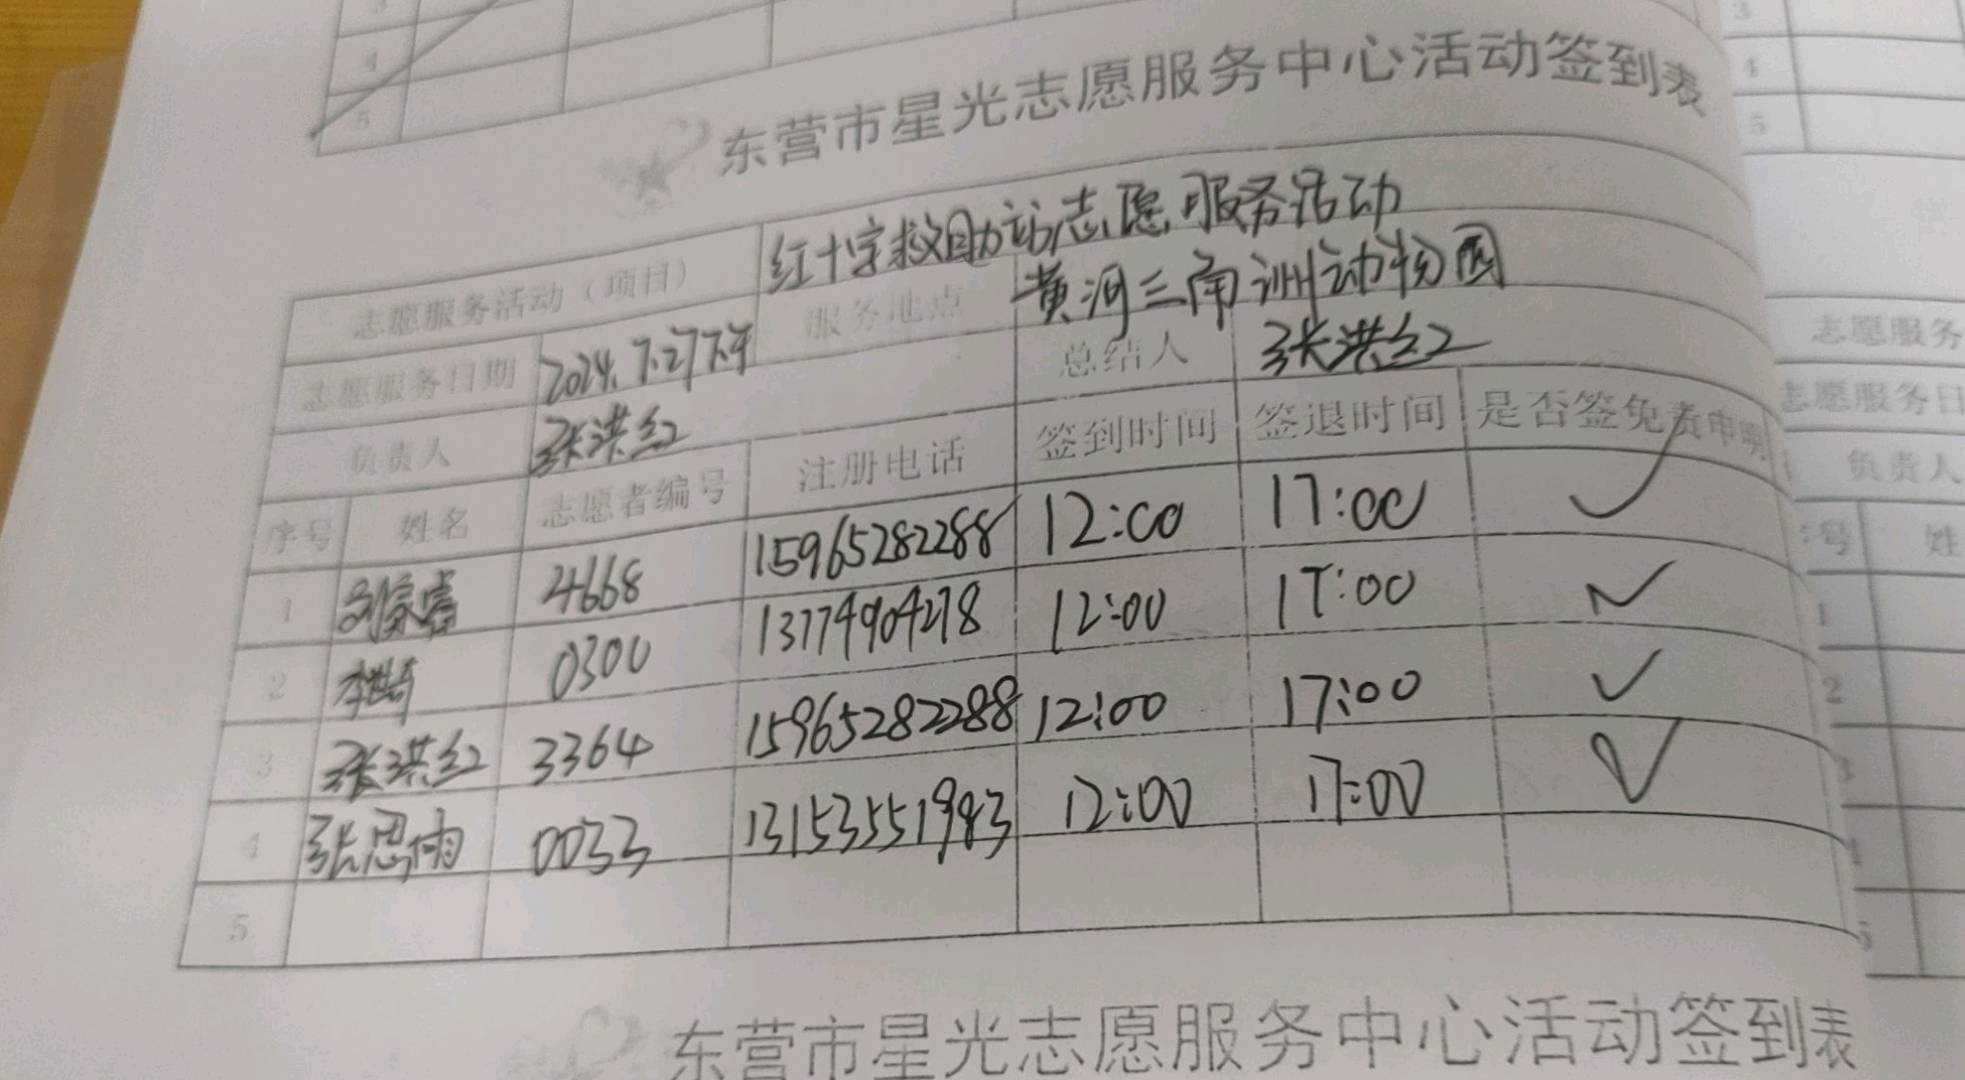 3
4
5
3
4
5
东营市星光志愿服务中心活动签到表
志愿服务活动（项目） 红十字救助站志愿服务活动
志愿服务日期 2024.7.27下午 服务地点 黄河三角洲动物园
负责人 张洪红 总结人 张洪红
序号 姓名 志愿者编号 注册电话 签到时间 签退时间 是否签免责申明
1 4668 15965282288 12:00 17:00 ✓
2 0300 13774904278 12:00 17:00 ✓
3 张洪红 3364 15965282288 12:00 17:00 ✓
4 张思雨 0033 13153551983 12:00 17:00 ✓
5
志愿服务
志愿服务日
负责人
序号 姓
1
2
3
4
5
东营市星光志愿服务中心活动签到表